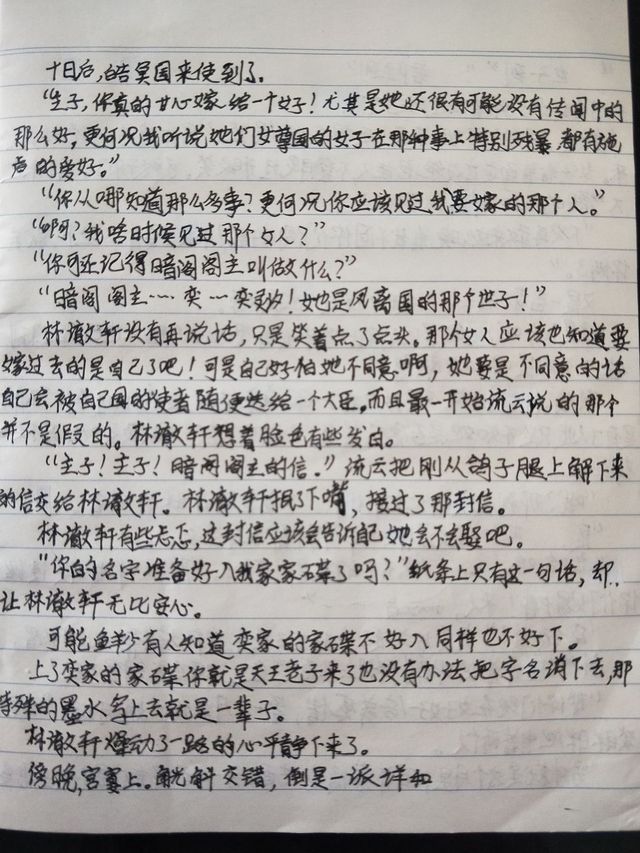 十日后，皓昊国来使到了。
“主子，你真的甘心嫁给一个女子！尤其是她还很有可能没有传闻中的
那么好，更何况我听说她们女尊国的女子在那种事上特别残暴，都有施
虐的爱好。”
“你从哪知道那么多事？更何况你应该见过我要嫁的那个人。”
“啊？我啥时候见过那个女人？”
“你可还记得暗阁阁主叫做什么？”
“暗阁阁主……奕…奕玖！她是风离国的那个世子！”
林澈轩没有再说话，只是笑着点了点头。那个女人应该也知道要
嫁过去的是自己了吧！可是自己好怕她不同意啊，她要是不同意的话
自己会被自己国的使者随便送给一个大臣。而且最一开始流云说的那个
并不是假的。林澈轩想着脸色有些发白。
“主子！主子！暗阁阁主的信。”流云把刚从鸽子腿上解下来
的信交给林澈轩。林澈轩抿了下嘴，接过了那封信。
林澈轩有些忐忑，这封信应该会告诉自己她会不会娶吧。
“你的名字准备好入我家家碟了吗？”纸条上只有这一句话，却
让林澈轩无比安心。
可能鲜少有人知道奕家的家碟不好入同样也不好下。
上了奕家的家碟你就是天王老子来了也没有办法把字名消下去，那
特殊的墨水写上去就是一辈子。
林澈轩燥动了一路的心平静下来了。
傍晚，宫宴上。觥斛交错，倒是一派详和